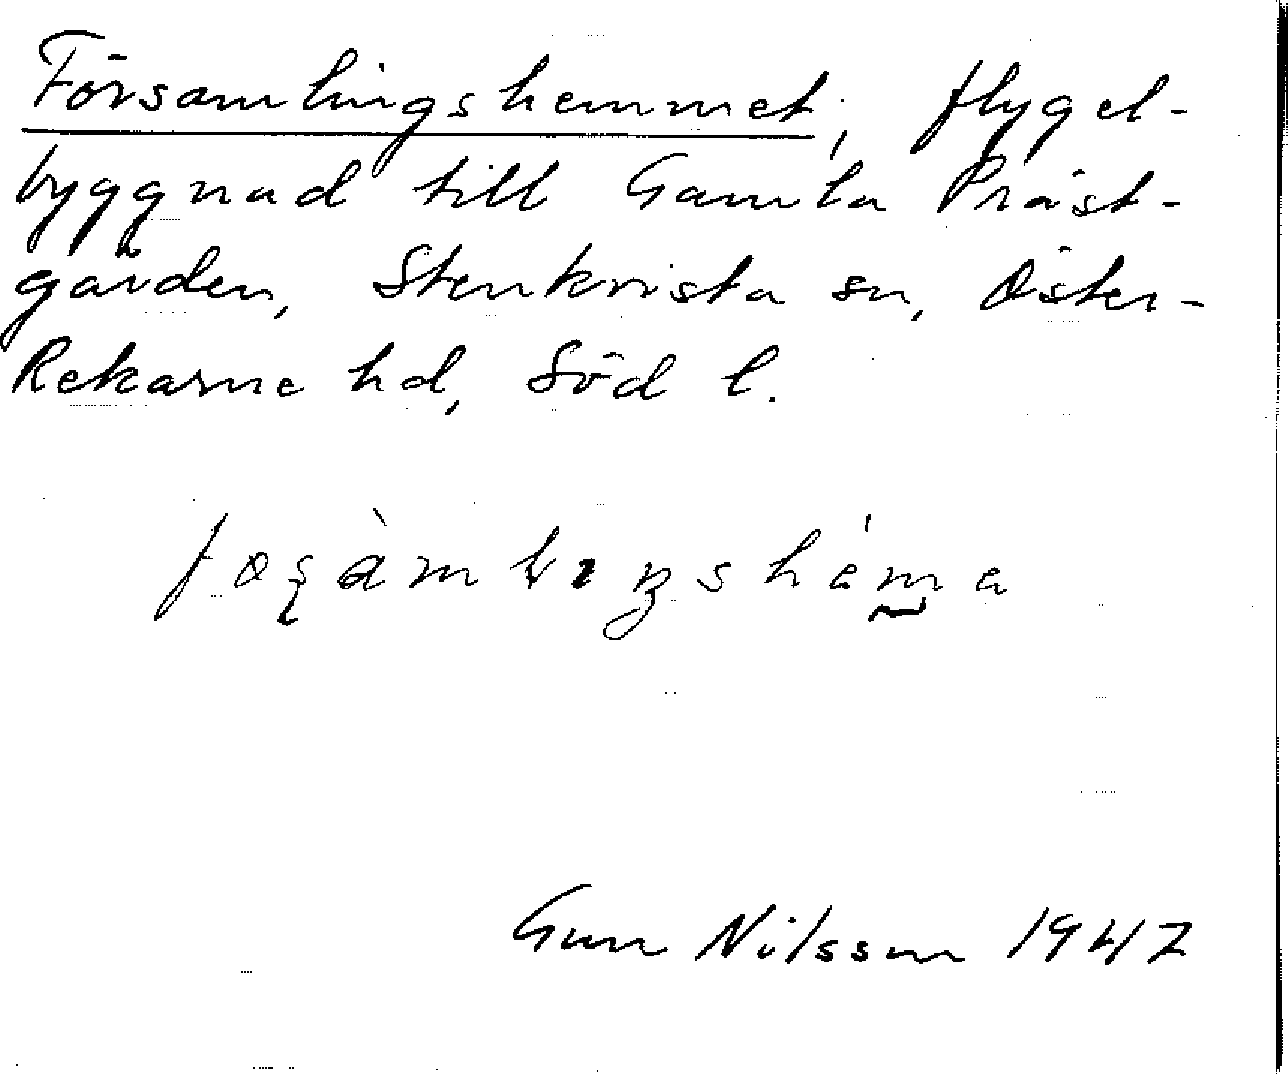 Församlingshemmet, flygel-
byggnad till Gamla Präst-
gården, Stenkvista sn, Öster-
Rekarne hd, Söd l.
Gun Nilsson 1947